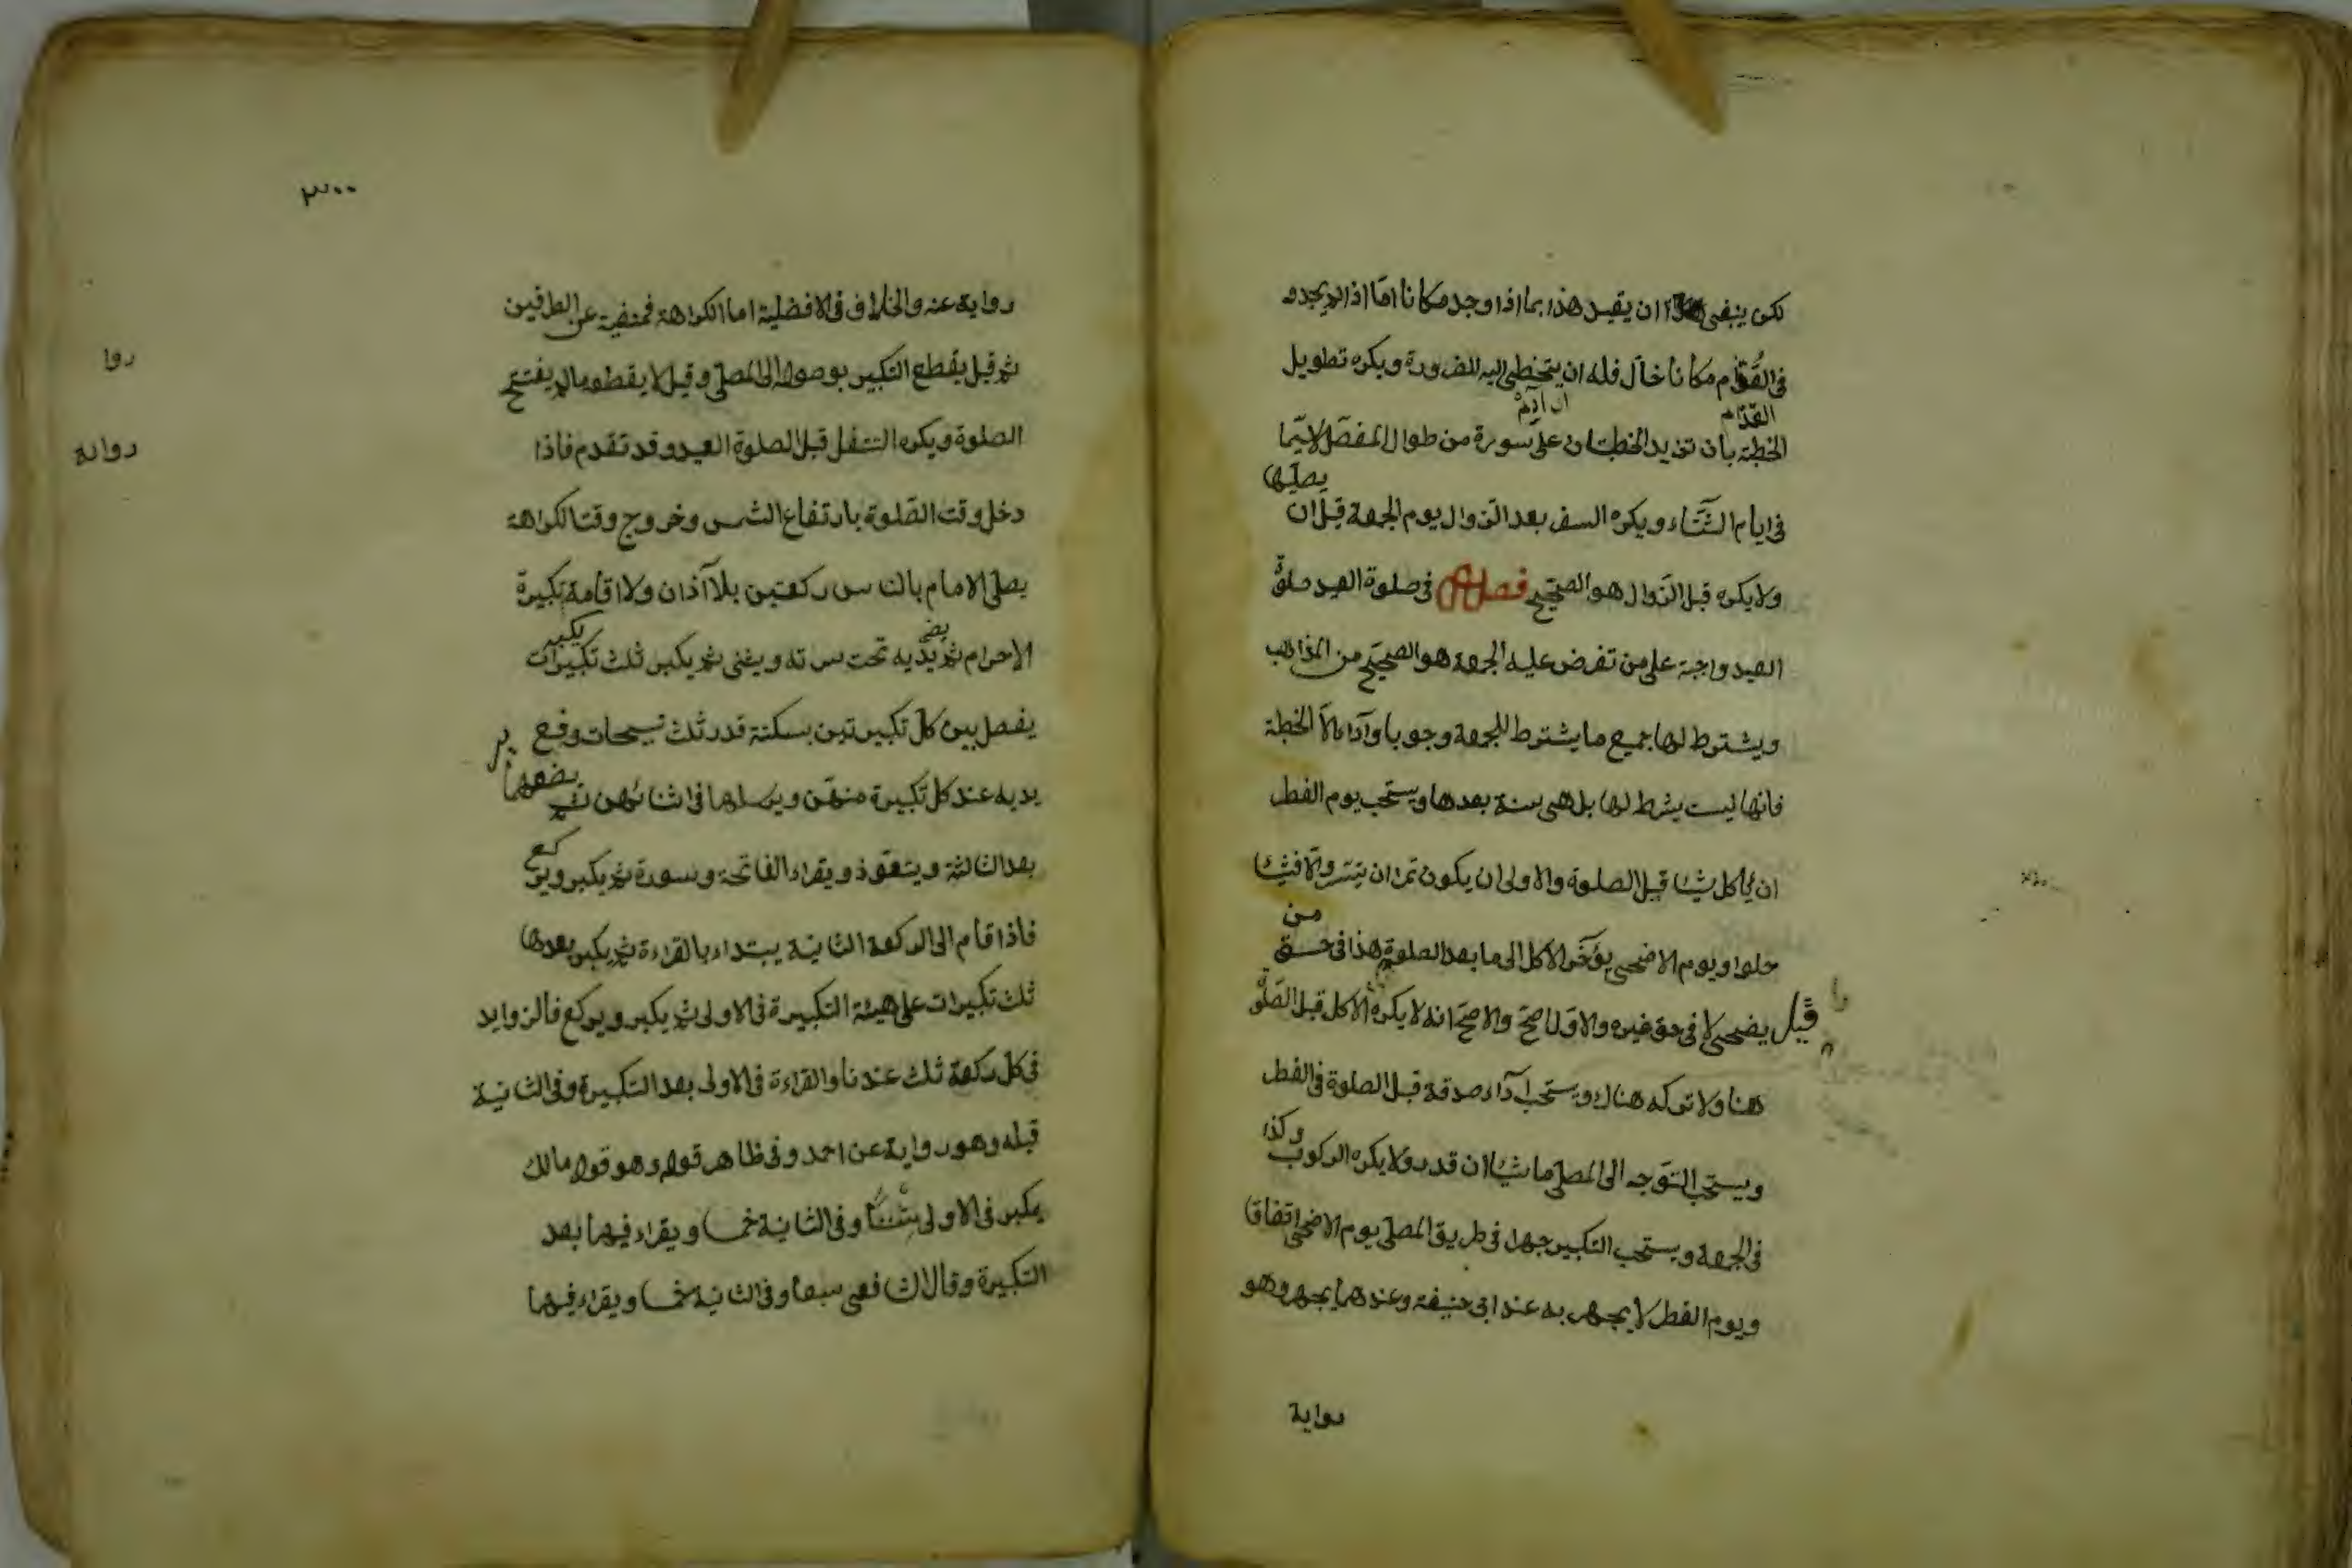 لكن ينبغي ان يقيد هذا بما اذا وجد مكانا امّا اذا لم يجد و
فى القُدّام مكانا خال فله ان يتخطى اليه للضرورة ويكره تطويل
القدّام
الخطبة بان تزيد الخطبتان على سورة من طوال المفصّل لا سيّما
فى ايام الشّتاء ويكره السفر بعد الزوال يوم الجمعة قبل ان
يصلّيها
ولا يكره قبل الزّوال هو الصحيح فصل فى صلوة العيد صلوة
العيد واجبة على من تفرض عليه الجمعة هو الصحيح من المذاهب
ويشترط لها جميع ما يشترط للجمعة وجوبا وآداء الاّ الخطبة
فانها ليست بشرط لها بل هى سنة بعدها ويستحب يوم الفطر
ان ياكل شيئا قبل الصلوة والاولى ان يكون تمرا ان تيسّر والّا فشيئا
حلوا ويوم الاضحى يؤخّر الاكل الى ما بعد الصلوة هذا فى حق
من
يضحى لا فى حق غيره والاوّل اصحّ والاصحّ انه لا يكره الاكل قبل الصّلوة
قيل
هنا ولا تركه هناك ويستحب آداء صدقة قبل الصلوة فى الفطر
ويستحب التّوجه الى المصلّى ماشيا ان قدر ولا يكره الركوب
وكذا
فى الجمعة ويستحب التكبير جهرا فى طريق المصلى يوم الاضحى اتفاقا
ويوم الفطر لا يجهر به عند ابى حنيفة وعندهما يجهر وهو
رواية
٣٠٠
رواية عنه والخلاف فى الافضلية اما الكراهة فمنفية عن الطرفين
ثم قيل يقطع التكبير بوصوله الى المصلّى وقيل لا يقطعه مالم يفتتح
روا
الصلوة ويكره التنفل قبل لصلوة العيد وقد تقدم فاذا
روايه
دخل وقت الصّلوة بارتفاع الشمس وخروج وقت الكراهة
يصلى الامام بالناس ركعتين بلا آذان ولا اقامة تكبيرة
يكبر
الاحرام ثم يديه تحت سرته ويثنى ثم يكبر ثلث تكبيرات
يضع
يفصل بين كل تكبيرتين بسكتة قدر ثلث تسبيحات وفع
ير
يديه عند كل تكبيرة منهّن ويرسلها فى اثنائهن ثم
يضعهما
بعد الثالثة ويتعوّذ ويقراء الفاتحة وسورة ثم يكبر وير
كع
فاذا قام الى الركعة الثانية يبتداء بالقراءة ثم يكبر بعدها
ثلث تكبيرات على هيئة التكبيرة فى الاولى ثم يكبر ويركع فالزوايد
فى كل ركعة ثلث عندنا والقراءة فى الاولى بعد التكبيرة وفى الثانية
قبله وهو رواية عن احمد وفى ظاهر قوله وهو قول مالك
يكبر فى الاولى ستّا وفى الثانية خمسا ويقراء فيهما بعد
التكبيرة وقال الشافعى سبعا وفى الثانية خمسا ويقراء فيهما